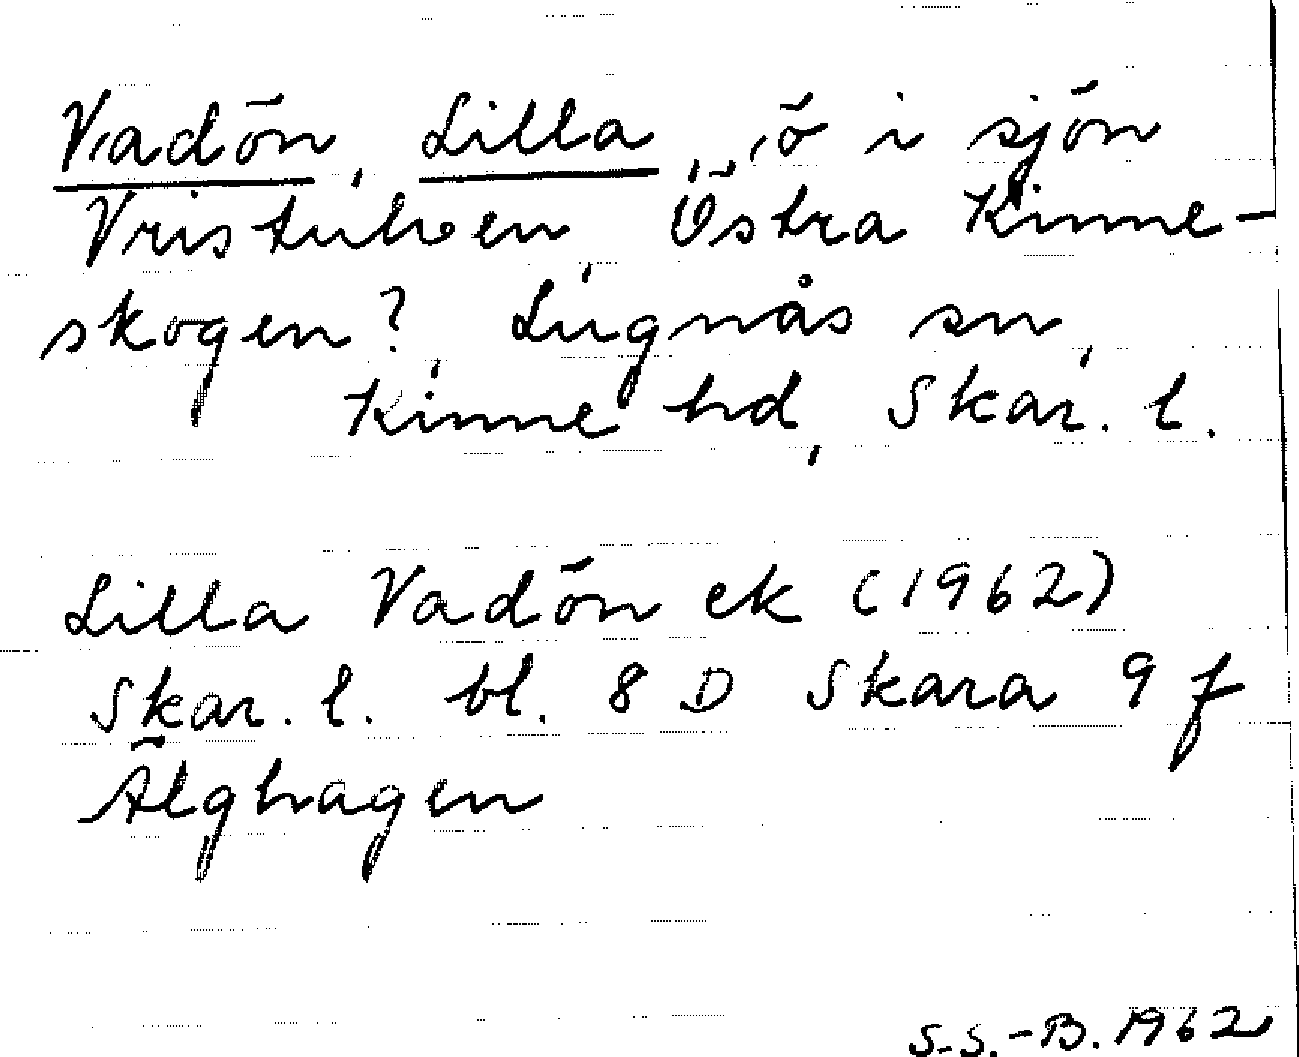 Vadön, Lilla, ö i sjön
Vristulven, Östra Kinne-
skogen?, Lugnås sn,
Kinne hd, Skar. l.
Lilla Vadön ek (1962)
Skar. l. bl. 8 D Skara 9 f
Älghagen
S.S.-B. 1962